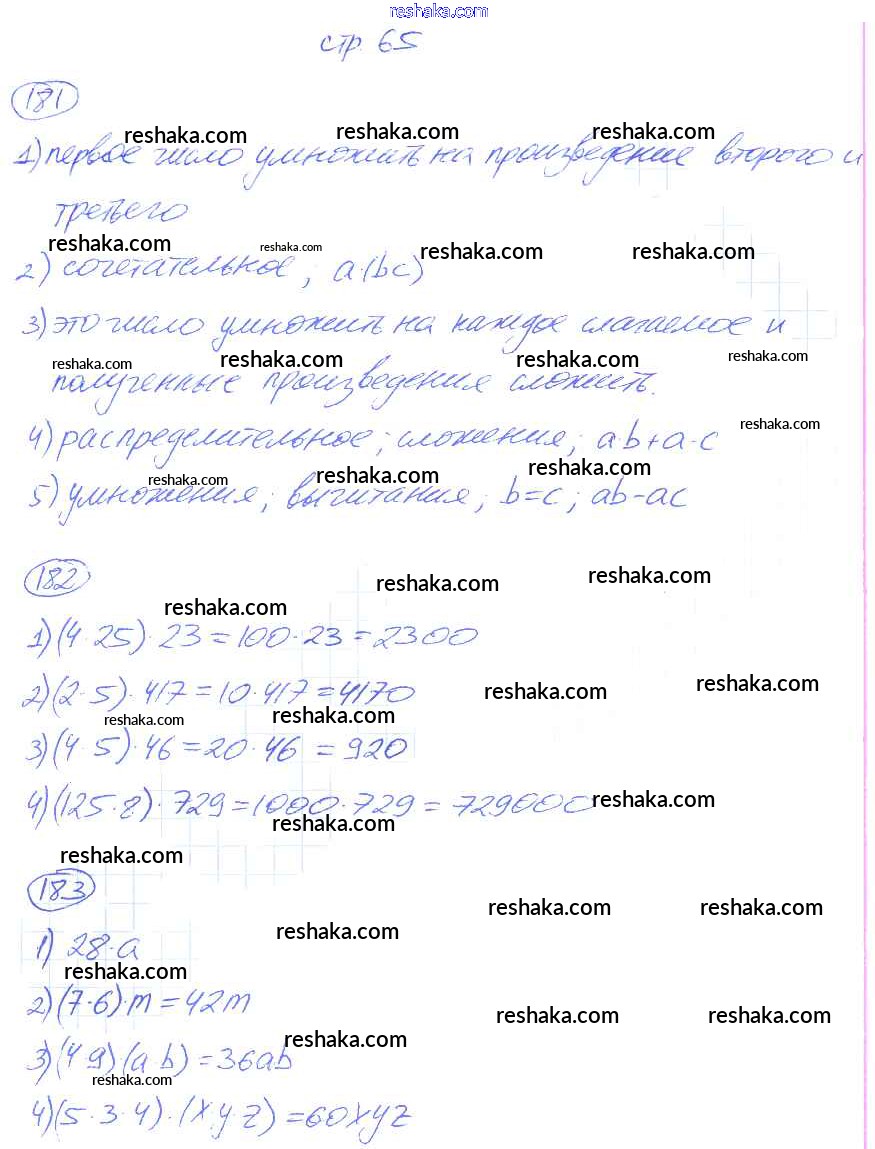 reshaka.com
стр. 65
181
reshaka.com reshaka.com reshaka.com
1) первое число умножить на произведение второго и
третьего
reshaka.com reshaka.com reshaka.com reshaka.com
2) сочетательное; a·(bc)
3) это число умножить на каждое слагаемое и
reshaka.com reshaka.com reshaka.com reshaka.com
полученные произведения сложить.
reshaka.com
4) распределительное; сложения; a·b+a·c
reshaka.com reshaka.com reshaka.com
5) умножения; вычитания; b=c; ab-ac
182
reshaka.com reshaka.com
reshaka.com
1) (4·25)·23=100·23=2300
2) (2·5)·417=10·417=4170
reshaka.com reshaka.com
reshaka.com reshaka.com
3) (4·5)·46=20·46=920
4) (125·8)·729=1000·729=729000
reshaka.com
reshaka.com
reshaka.com
183
reshaka.com reshaka.com
reshaka.com
1) 28·a
reshaka.com
2) (7·6)·m=42m
reshaka.com reshaka.com
reshaka.com
3) (4·9)(a·b)=36ab
reshaka.com
4) (5·3·4)·(x·y·z)=60xyz